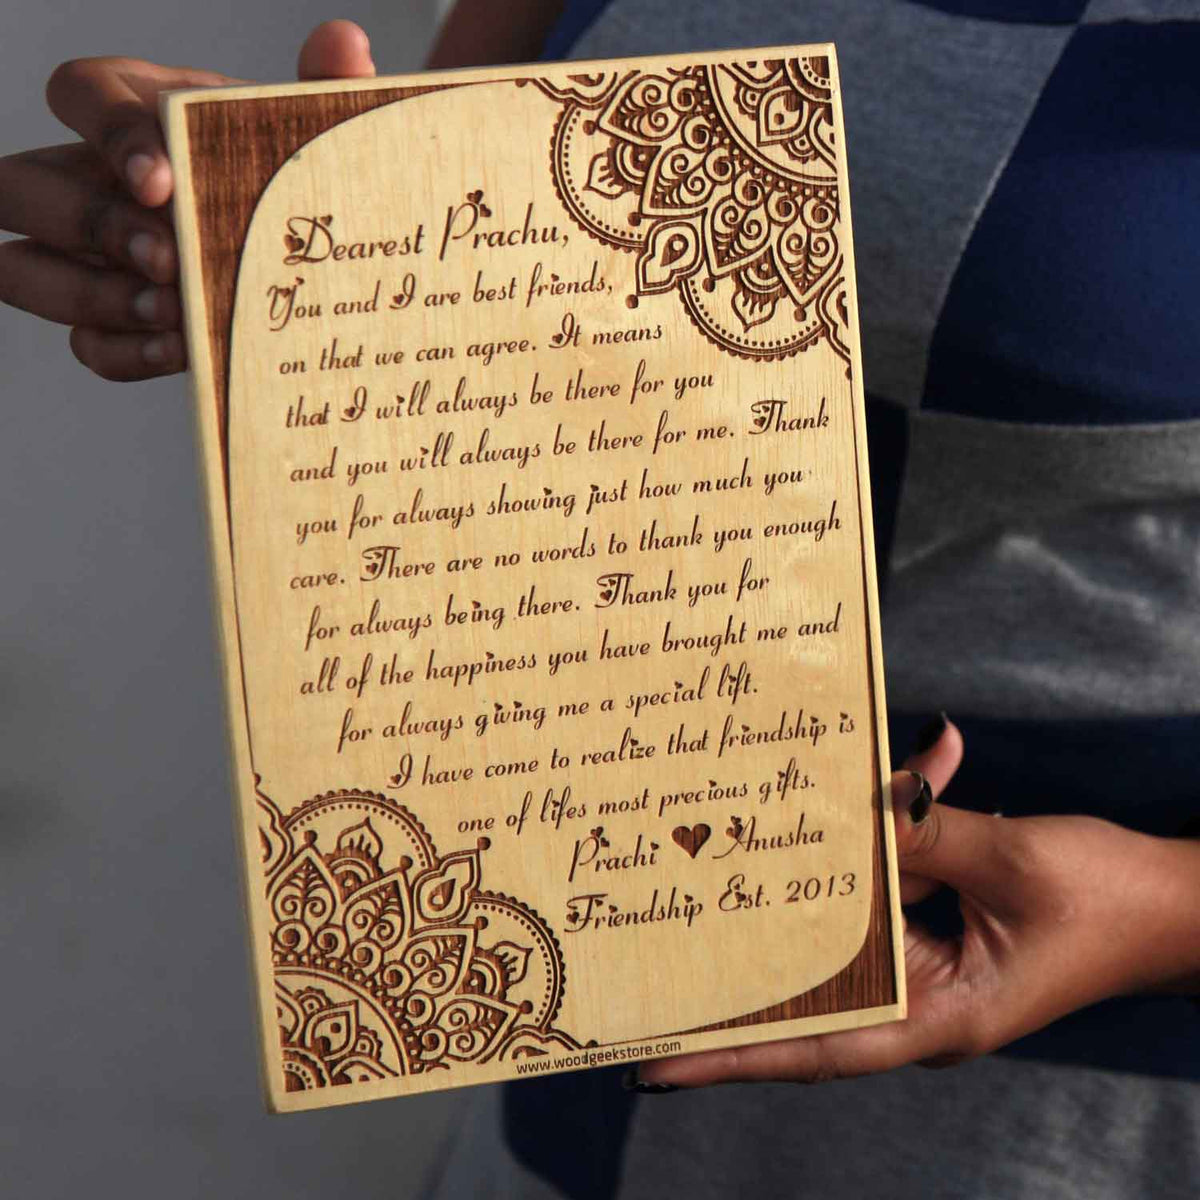 Dearest Prachu,
You and I are best friends,
on that we can agree. It means
that I will always be there for you
and you will always be there for me. Thank
you for always showing just how much you
care. There are no words to thank you enough
for always being there. Thank you for
all of the happiness you have brought me and
for always giving me a special lift.
I have come to realize that friendship is
one of lifes most precious gifts.
Prachi ♥ Anusha
Friendship Est. 2013
www.woodgeekstore.com